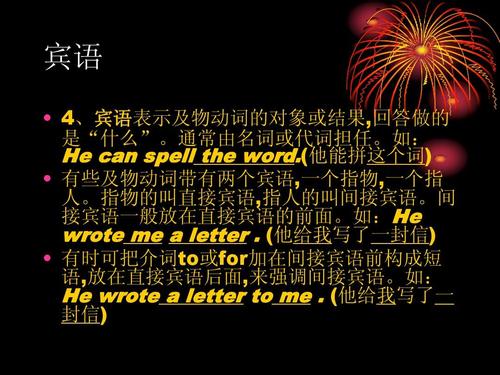 宾语
• 4、宾语表示及物动词的对象或结果,回答做的
是“什么”。通常由名词或代词担任。如:
He can spell the word.(他能拼这个词)
• 有些及物动词带有两个宾语,一个指物,一个指
人。指物的叫直接宾语,指人的叫间接宾语。间
接宾语一般放在直接宾语的前面。如: He
wrote me a letter . (他给我写了一封信)
• 有时可把介词to或for加在间接宾语前构成短
语,放在直接宾语后面,来强调间接宾语。如:
He wrote a letter to me . (他给我写了一
封信)